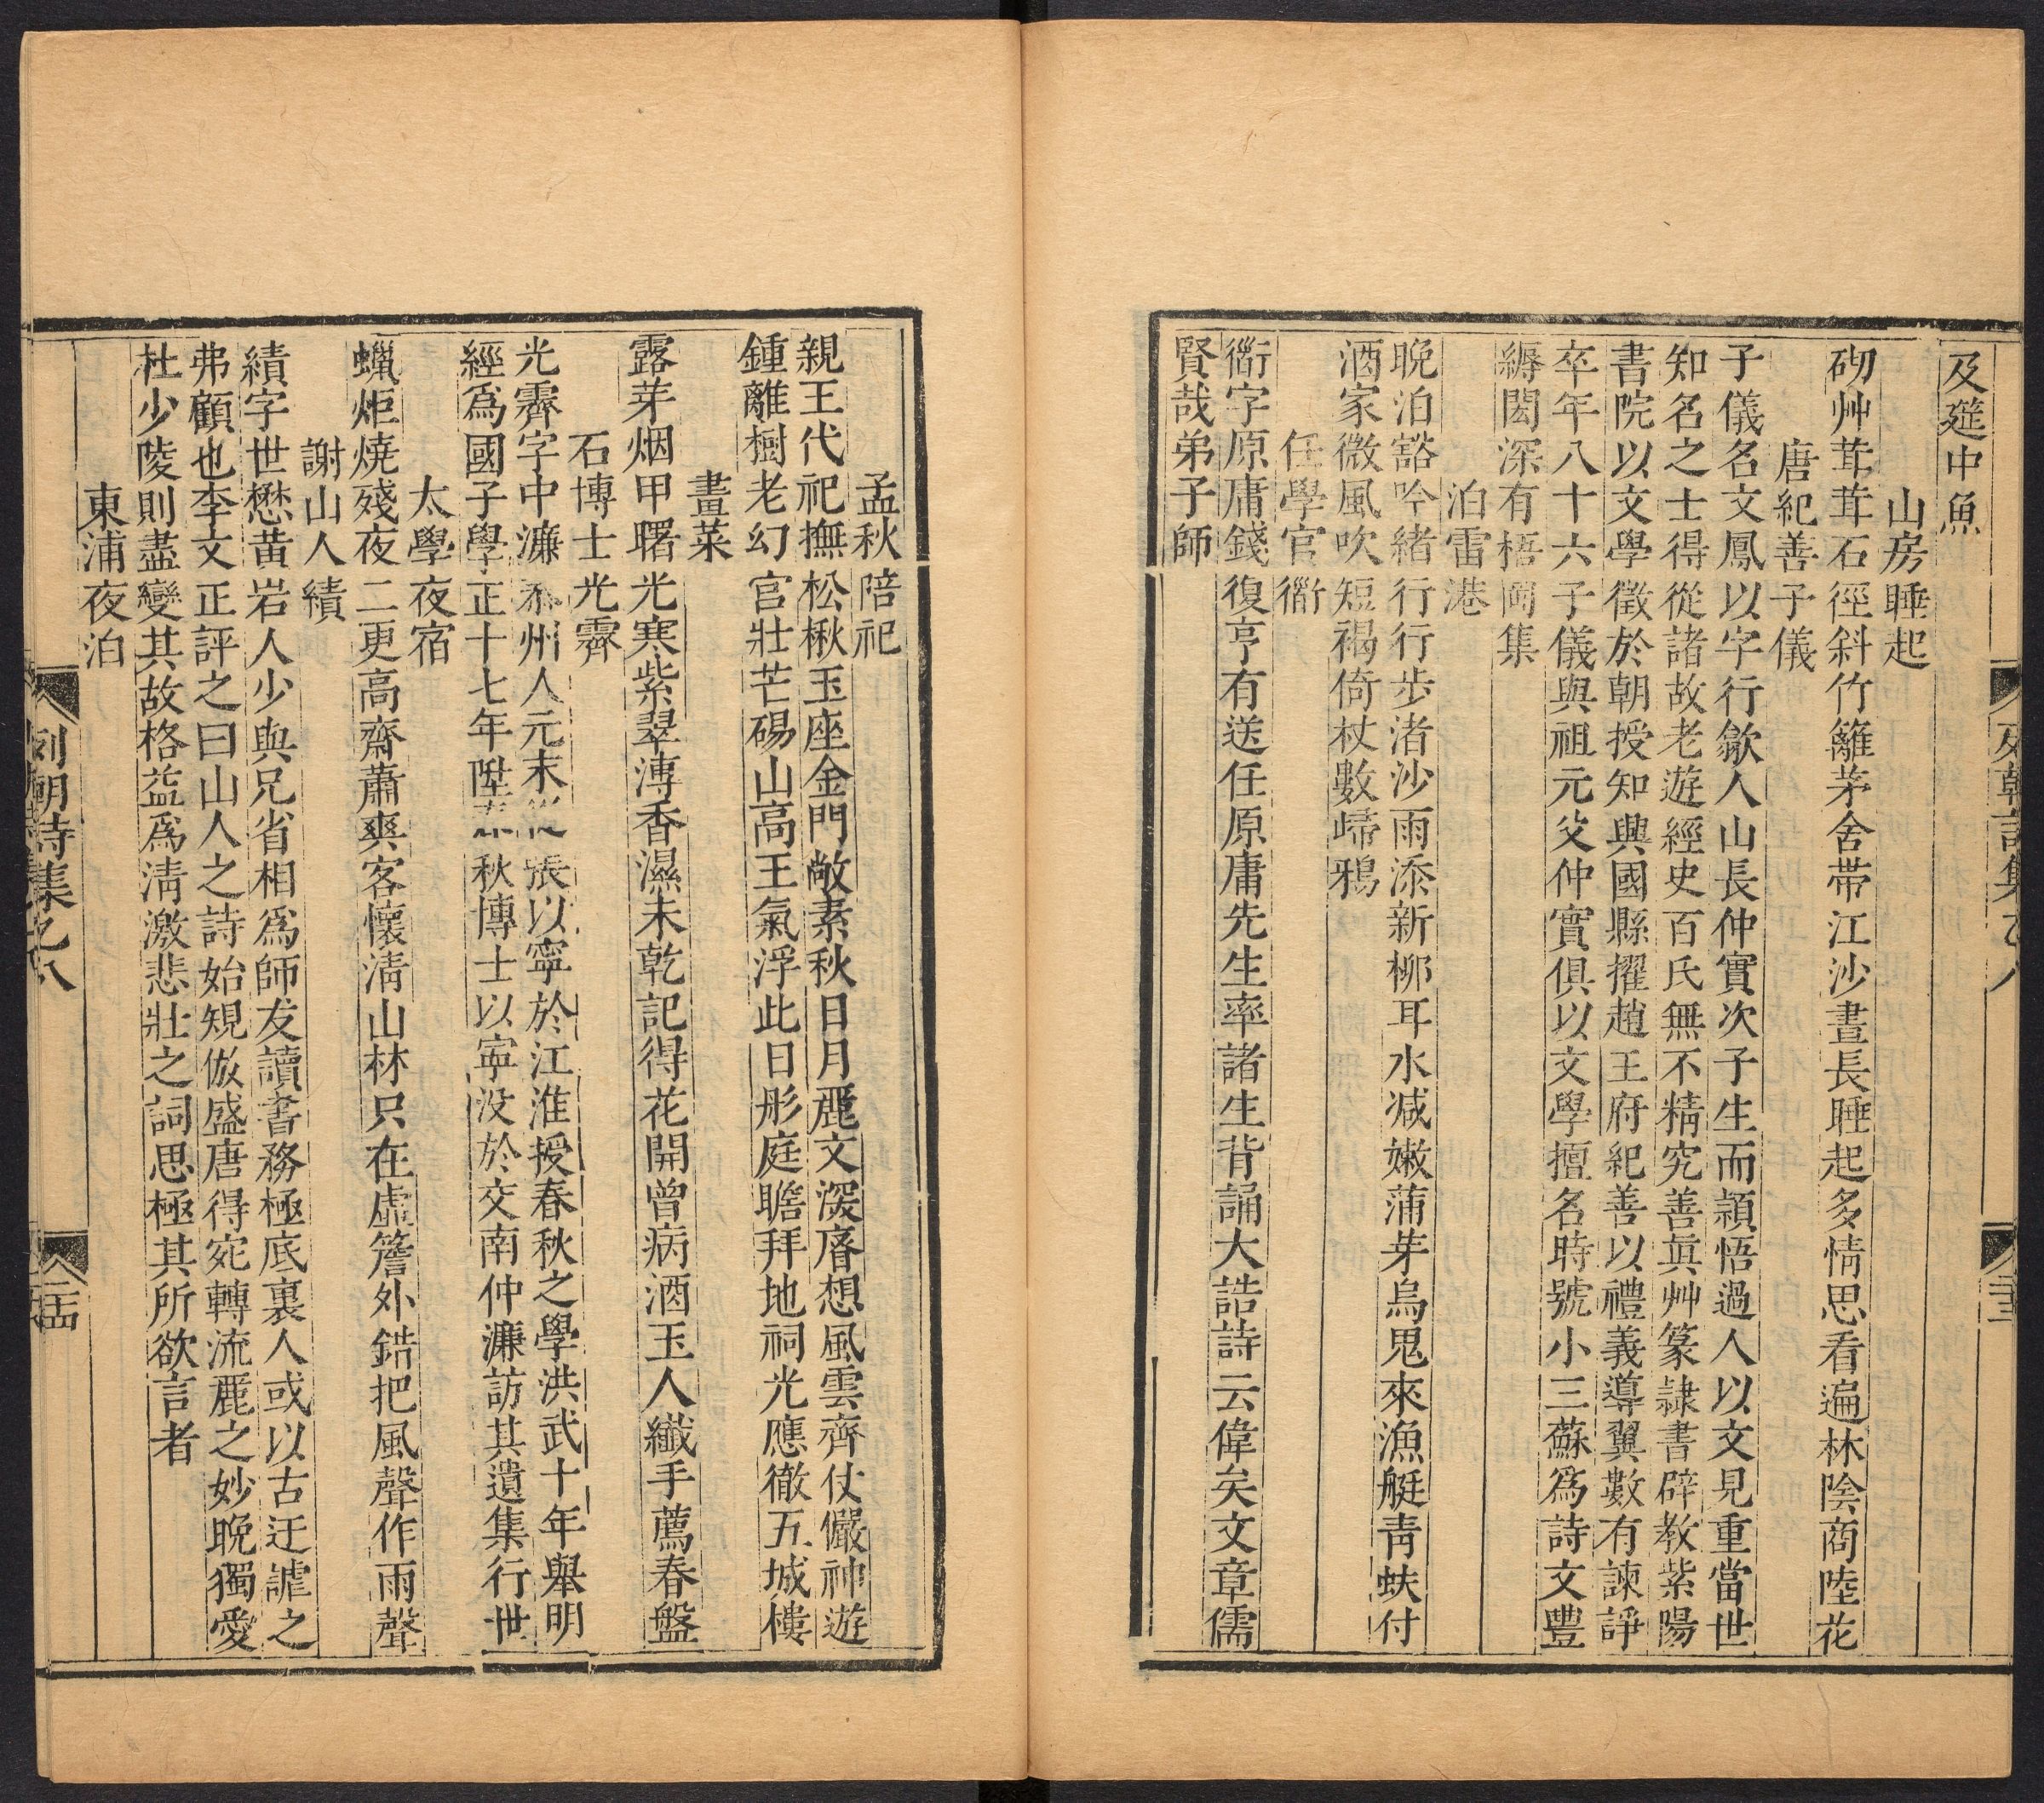 及筵中魚
山房睡起
砌艸茸茸石徑斜竹籬茅舍帶江沙晝長睡起多情思看遍林陰商陸花
唐紀善子儀
子儀名文鳳以字行歙人山長仲實次子生而頴悟過人以文見重當世
知名之士得從諸故老遊經史百氏無不精究善眞艸篆隷書辟教紫陽
書院以文學徵於朝授知興國縣擢趙王府紀善以禮義導翼數有諫諍
卒年八十六子儀與祖元父仲實俱以文學擅名時號小三蘇爲詩文豐
縟閎深有梧岡集
泊雷港
晚泊豁吟緒行行步渚沙雨添新柳耳水减嫩蒲芽烏鬼來漁艇靑蚨付
酒家微風吹短褐倚杖數歸鴉
任學官衜
衜字原庸錢復亨有送任原庸先生率諸生背誦大誥詩云偉矣文章儒
賢哉弟子師
孟秋陪祀
親王代祀撫松楸玉座金門敞素秋日月麗文深睿想風雲齊仗儼神遊
鍾離樹老幻官壯芒碭山高王氣浮此日彤庭瞻拜地祠光應徹五城樓
畫菜
露芽烟甲曙光寒紫翠漙香濕未乾記得花開曾病酒玉人纖手薦春盤
石博士光霽
光霽字中濂泰州人元末從張以寧於江淮授春秋之學洪武十年舉明
經爲國子學正十七年陞春秋博士以寧没於交南仲濂訪其遺集行世
太學夜宿
蠟炬燒殘夜二更高齋蕭爽客懷淸山林只在虛簷外錯把風聲作雨聲
謝山人績
績字世懋黃岩人少與兄省相爲師友讀書務極底裏人或以古迂謔之
弗顧也李文正評之曰山人之詩始規倣盛唐得宛轉流麗之妙晚獨愛
杜少陵則盡變其故格益爲淸激悲壯之詞思極其所欲言者
東浦夜泊
列朝詩集乙八
二十四